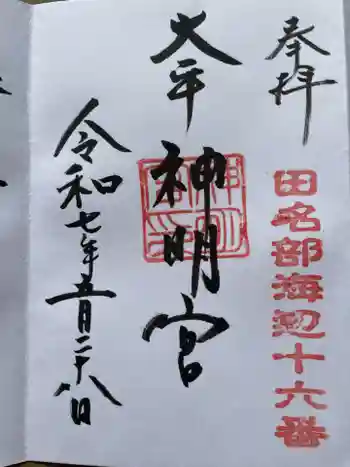 奉拝
田名部海辺十六番
大平神明宮
令和七年五月二十八日